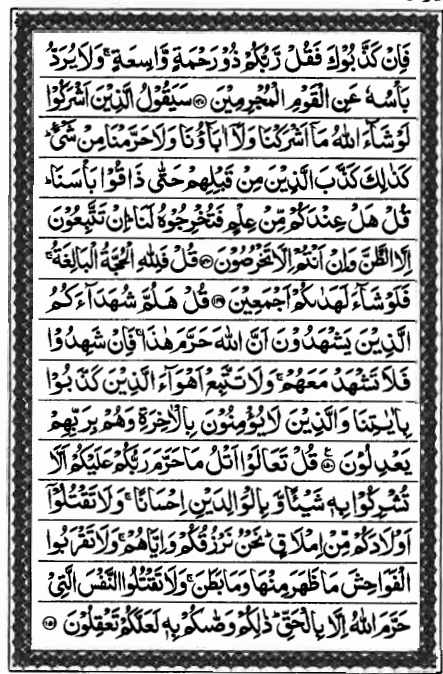 فَاِنۡ كَذَّبُوۡكَ فَقُلۡ رَّبُّكُمۡ ذُوۡ رَحۡمَةٍ وَّاسِعَةٍ ۚ وَلَا يُرَدُّ
بَاۡسُهٗ عَنِ الۡقَوۡمِ الۡمُجۡرِمِيۡنَ ﴿۱۴۷﴾ سَيَقُوۡلُ الَّذِيۡنَ اَشۡرَكُوۡا
لَوۡ شَآءَ اللّٰهُ مَاۤ اَشۡرَكۡنَا وَلَاۤ اٰبَآؤُنَا وَلَا حَرَّمۡنَا مِنۡ شَىۡءٍ ؕ
كَذٰلِكَ كَذَّبَ الَّذِيۡنَ مِنۡ قَبۡلِهِمۡ حَتّٰى ذَاقُوۡا بَاۡسَنَا ؕ
قُلۡ هَلۡ عِنۡدَكُمۡ مِّنۡ عِلۡمٍ فَتُخۡرِجُوۡهُ لَنَا ؕ اِنۡ تَتَّبِعُوۡنَ
اِلَّا الظَّنَّ وَاِنۡ اَنۡتُمۡ اِلَّا تَخۡرُصُوۡنَ ﴿۱۴۸﴾ قُلۡ فَلِلّٰهِ الۡحُجَّةُ الۡبَالِغَةُ ۚ
فَلَوۡ شَآءَ لَهَدٰٮكُمۡ اَجۡمَعِيۡنَ ﴿۱۴۹﴾ قُلۡ هَلُمَّ شُهَدَآءَكُمُ
الَّذِيۡنَ يَشۡهَدُوۡنَ اَنَّ اللّٰهَ حَرَّمَ هٰذَا ۚ فَاِنۡ شَهِدُوۡا
فَلَا تَشۡهَدۡ مَعَهُمۡ ۚ وَلَا تَتَّبِعۡ اَهۡوَآءَ الَّذِيۡنَ كَذَّبُوۡا
بِاٰيٰتِنَا وَالَّذِيۡنَ لَا يُؤۡمِنُوۡنَ بِالۡاٰخِرَةِ وَهُمۡ بِرَبِّهِمۡ
يَعۡدِلُوۡنَ ﴿۱۵۰﴾ قُلۡ تَعَالَوۡا اَتۡلُ مَا حَرَّمَ رَبُّكُمۡ عَلَيۡكُمۡ اَلَّا
تُشۡرِكُوۡا بِهٖ شَيۡـًٔا وَّبِالۡوَالِدَيۡنِ اِحۡسَانًا ۚ وَلَا تَقۡتُلُوۡۤا
اَوۡلَادَكُمۡ مِّنۡ اِمۡلَاقٍ ؕ نَحۡنُ نَرۡزُقُكُمۡ وَاِيَّاهُمۡ ۚ وَلَا تَقۡرَبُوا
الۡفَوَاحِشَ مَا ظَهَرَ مِنۡهَا وَمَا بَطَنَ ۚ وَلَا تَقۡتُلُوا النَّفۡسَ الَّتِىۡ
حَرَّمَ اللّٰهُ اِلَّا بِالۡحَقِّ ؕ ذٰلِكُمۡ وَصّٰٮكُمۡ بِهٖ لَعَلَّكُمۡ تَعۡقِلُوۡنَ ﴿۱۵۱﴾